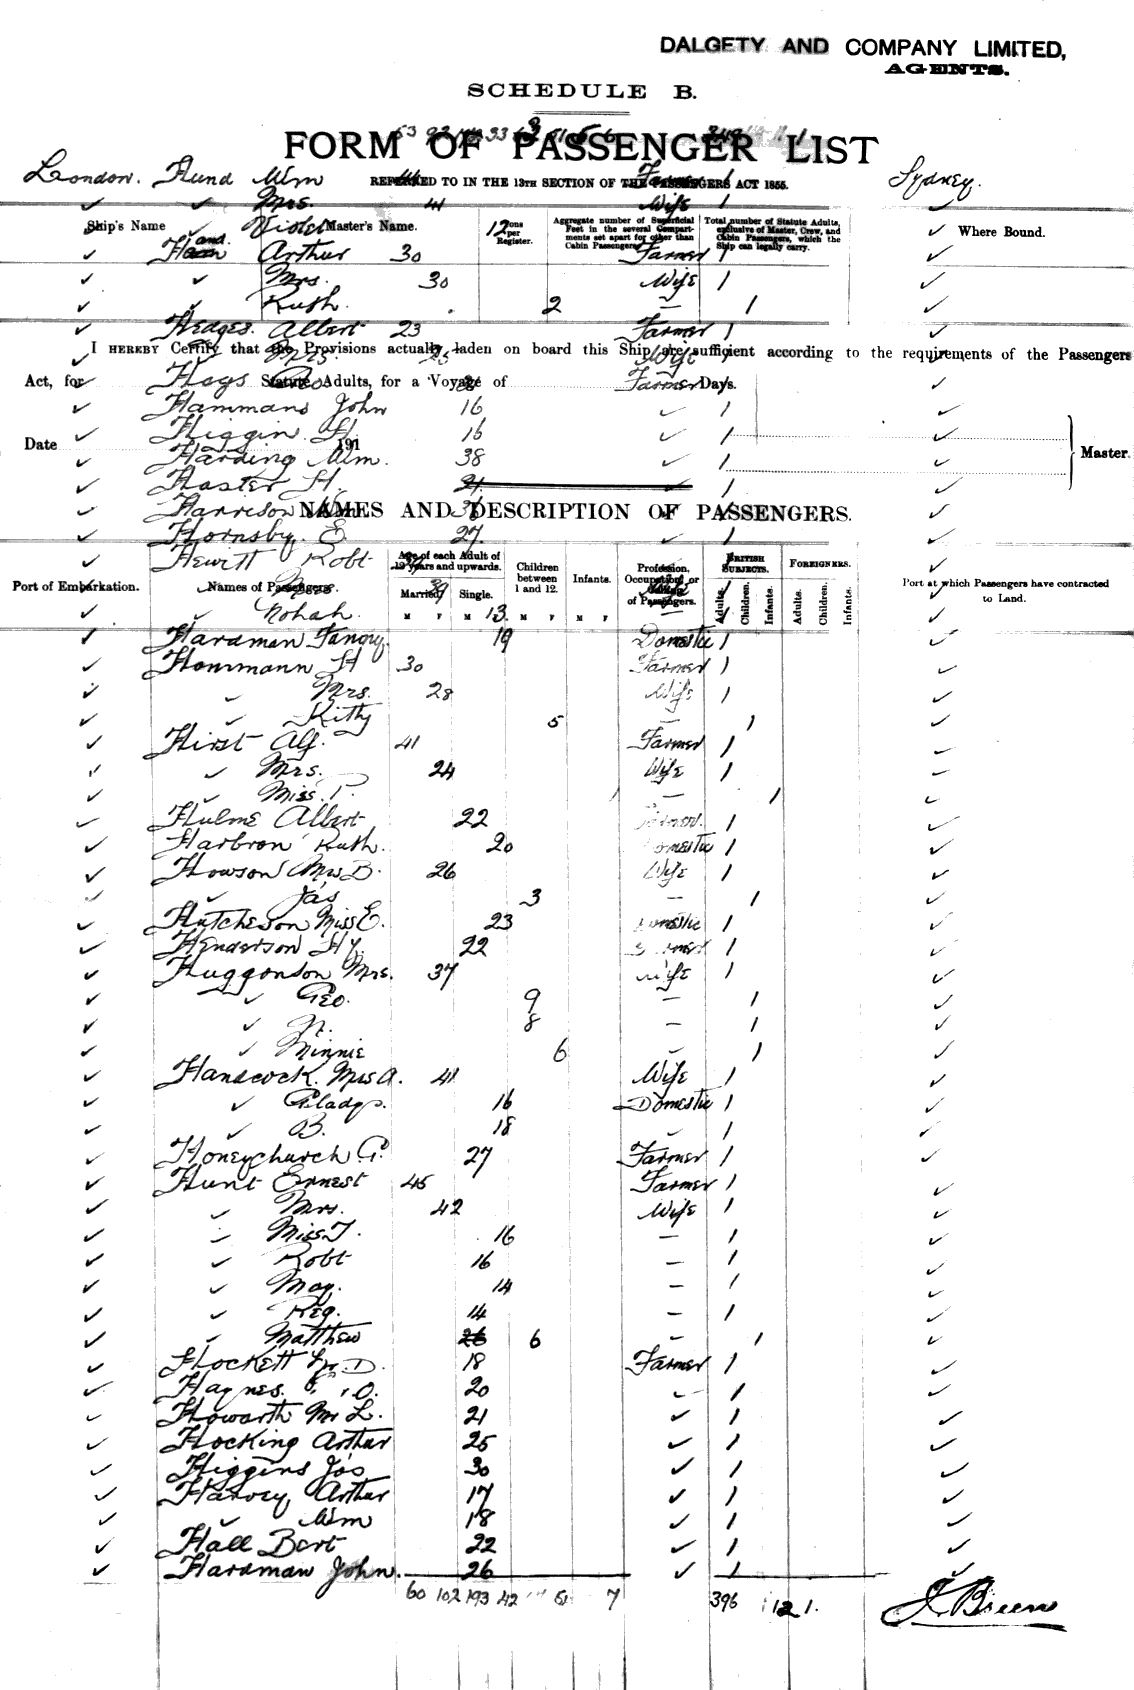 DALGETY AND COMPANY LIMITED,
AGENTS.
SCHEDULE B.
FORM OF PASSENGER LIST
London. Hund Wm Farmer 1 Sydney.
REFERRED TO IN THE 13TH SECTION OF THE PASSENGERS ACT 1855.
✓ ✓ Mrs. 41 Wife 1 ✓
Ship's Name Master's Name. Tons per Register. Aggregate number of Superficial Feet in the several Compartments set apart for other than Cabin Passengers. Total number of Statute Adults, exclusive of Master, Crew, and Cabin Passengers, which the Ship can legally carry. Where Bound.
✓ Violet 12 ✓
✓ Hand Arthur 30 Farmer 1 ✓
✓ ✓ Mrs. 30 Wife 1 ✓
✓ ✓ Ruth. 2 — 1 ✓
✓ Hedges. Albert 23 Farmer 1 ✓
I HEREBY Certify that the Provisions actually laden on board this Ship are sufficient according to the requirements of the Passengers
✓ Mrs. Wife ✓
Act, for Statute Adults, for a Voyage of Days.
✓ Hays Farmer ✓
✓ Hammans John 16 ✓ 1 ✓
✓ Higgin H. 16 ✓ 1 ✓
Date 191 Master.
✓ Harding Wm. 38 ✓ 1 ✓
✓ Haster H. 21 1 ✓
✓ Harrison ✓
NAMES AND DESCRIPTION OF PASSENGERS.
✓ Hornsby. E 27 ✓ 1 ✓
✓ Hewitt Robt ✓
Port of Embarkation. Names of Passengers. Age of each Adult of 12 years and upwards. Married. Single. Children between 1 and 12. Infants. Profession, Occupation, or Calling of Passengers. BRITISH SUBJECTS. Adults. Children. Infants. FOREIGNERS. Adults. Children. Infants. Port at which Passengers have contracted to Land.
M F M F M F M F
✓ ✓ Norah 13. — ✓
✓ Hardman Fanny. 19 Domestic 1 ✓
✓ Hommann H 30 Farmer 1 ✓
✓ ✓ Mrs. 28 Wife 1 ✓
✓ ✓ Kitty 5 — 1 ✓
✓ Hirst Alf. 41 Farmer 1 ✓
✓ ✓ Mrs. 24 Wife 1 ✓
✓ ✓ Miss. P. 1 — 1 ✓
✓ Hulme Albert 22 Farmer. 1 ✓
✓ Harbron Ruth. 20 Domestic 1 ✓
✓ Howson Mrs B. 26 Wife 1 ✓
✓ ✓ Jas 3 — 1 ✓
✓ Hutcheson Miss E. 23 Domestic 1 ✓
✓ Henderson Hy. 22 Farmer 1 ✓
✓ Huggonson Mrs. 37 Wife 1 ✓
✓ ✓ Geo. 9 — 1 ✓
✓ ✓ N. 8 — 1 ✓
✓ ✓ Minnie 6 — 1 ✓
✓ Handcock. Mrs A. 41 Wife 1 ✓
✓ ✓ Gladys. 16 Domestic 1 ✓
✓ ✓ B. 18 ✓ 1 ✓
✓ Honeychurch G. 27 Farmer 1 ✓
✓ Hunt Ernest 45 Farmer 1 ✓
✓ ✓ Mrs. 42 Wife 1 ✓
✓ ✓ Miss T. 16 — 1 ✓
✓ ✓ Robt 16 — 1 ✓
✓ ✓ May. 14 — 1 ✓
✓ ✓ Reg. 14 — 1 ✓
✓ ✓ Matthew 26 6 — 1 ✓
✓ Hockett D. 18 Farmer 1 ✓
✓ Haynes. O. 20 ✓ 1 ✓
✓ Howarth Mr L. 21 ✓ 1 ✓
✓ Hocking Arthur 25 ✓ 1 ✓
✓ Higgins Jas 30 ✓ 1 ✓
✓ Harvey, Arthur 17 ✓ 1 ✓
✓ ✓ Wm 18 ✓ 1 ✓
✓ Hall Bert 22 ✓ 1 ✓
✓ Hardman John. 26 ✓ 1 ✓
60 102 193 42 51 7 396 121.
J. Breen